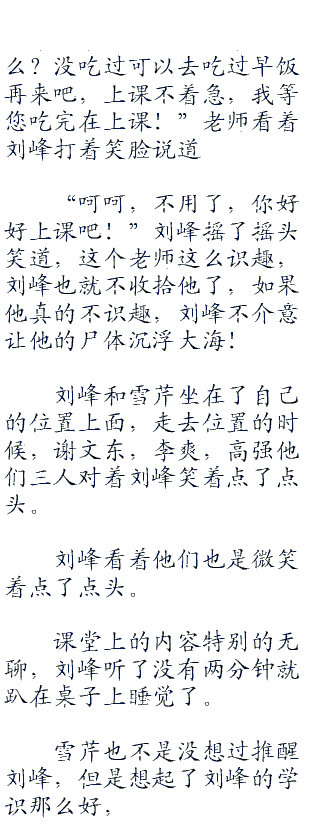 么？没吃过可以去吃过早饭
再来吧，上课不着急，我等
您吃完在上课！”老师看着
刘峰打着笑脸说道
“呵呵，不用了，你好
好上课吧！”刘峰摇了摇头
笑道，这个老师这么识趣，
刘峰也就不收拾他了，如果
他真的不识趣，刘峰不介意
让他的尸体沉浮大海！
刘峰和雪芹坐在了自己
的位置上面，走去位置的时
候，谢文东，李爽，高强他
们三人对着刘峰笑着点了点
头。
刘峰看着他们也是微笑
着点了点头。
课堂上的内容特别的无
聊，刘峰听了没有两分钟就
趴在桌子上睡觉了。
雪芹也不是没想过推醒
刘峰，但是想起了刘峰的学
识那么好，